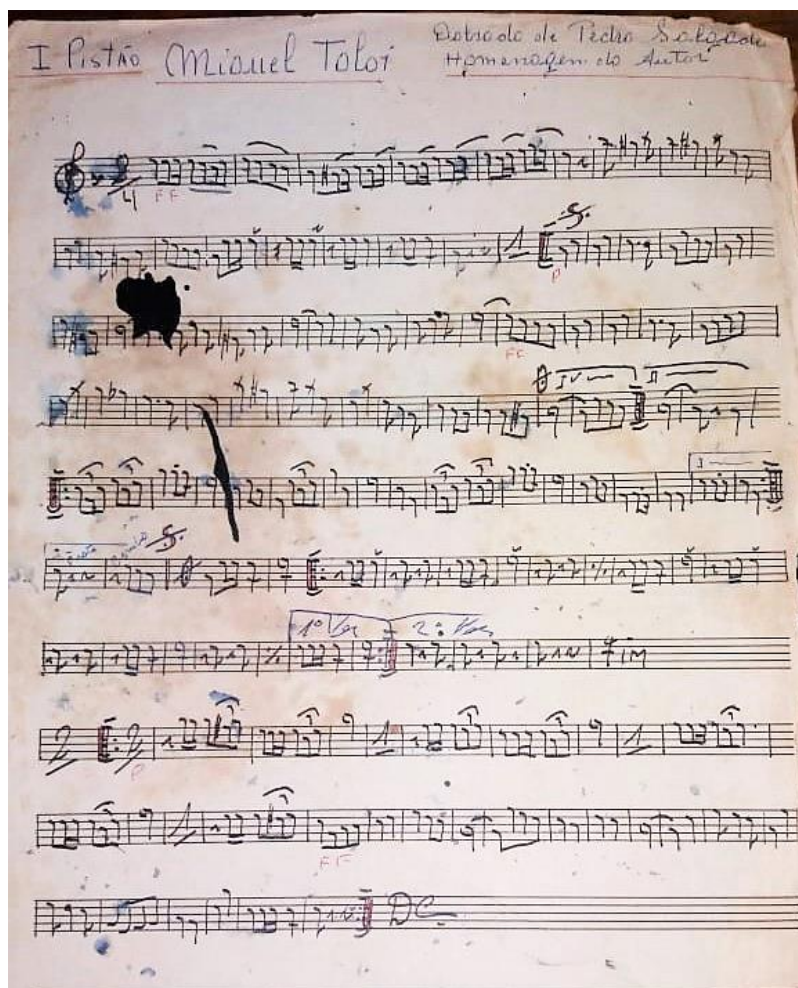 I Pistão Miguel Toloi Dobrado de Pedro Salgado
Homenagem do Autor
2
4
FF
1
P
FF
I
1ª Vez 2ª Vez
Fim
2 2 1 1
P
1
FF
DC